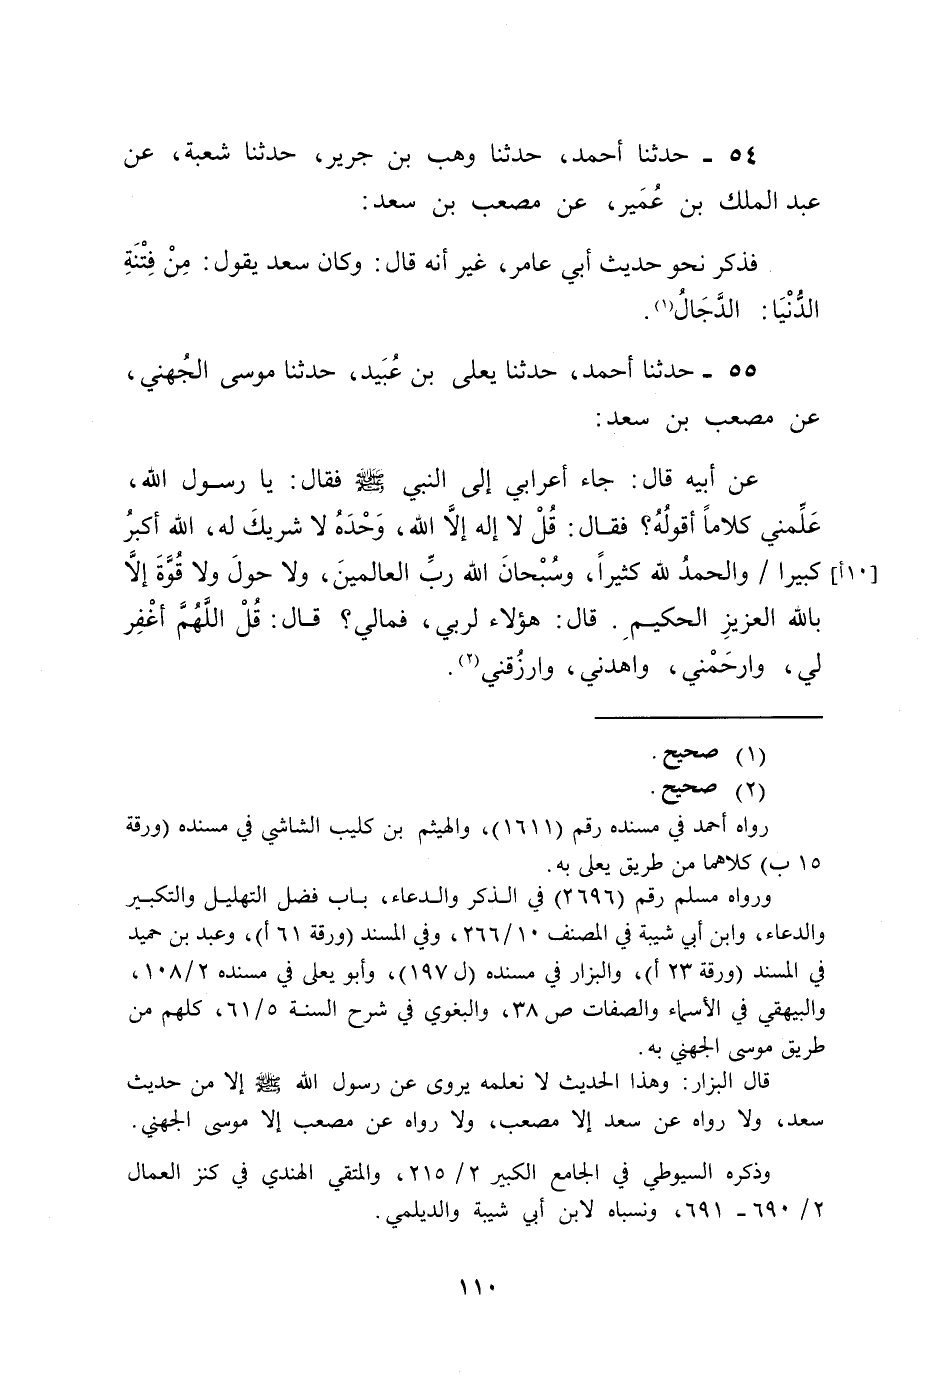 ٥٤ ـ حدثنا أحمد، حدثنا وهب بن جرير، حدثنا شعبة، عن
عبد الملك بن عُمَير، عن مصعب بن سعد:
فذكر نحو حديث أبي عامر، غير أنه قال: وكان سعد يقول: مِنْ فِتْنَةِ
الدُّنْيَا: الدَّجَالُ(١).
٥٥ ـ حدثنا أحمد، حدثنا يعلى بن عُبَيد، حدثنا موسى الجُهني،
عن مصعب بن سعد:
عن أبيه قال: جاء أعرابي إلى النبي ﷺ فقال: يا رسول الله،
عَلِّمني كلاماً أقولُهُ؟ فقال: قُلْ لا إله إلاَّ الله، وَحْدَهُ لا شريكَ له، الله أكبرُ
[١٠أ] كبيرا / والحمدُ لله كثيراً، وسُبْحانَ الله ربِّ العالمينَ، ولا حولَ ولا قُوَّةَ إلاَّ
بالله العزيزِ الحكيمِ. قال: هؤلاء لربي، فمالي؟ قال: قُلْ اللَّهُمَّ أغْفِر
لي، وارحَمْني، واهدني، وارزُقني(٢).
(١) صحيح.
(٢) صحيح.
رواه أحمد في مسنده رقم (١٦١١)، والهيثم بن كليب الشاشي في مسنده (ورقة
١٥ ب) كلاهما من طريق يعلى به.
ورواه مسلم رقم (٢٦٩٦) في الذكر والدعاء، باب فضل التهليل والتكبير
والدعاء، وابن أبي شيبة في المصنف ٢٦٦/١٠، وفي المسند (ورقة ٦١ أ)، وعبد بن حميد
في المسند (ورقة ٢٣ أ)، والبزار في مسنده (ل ١٩٧)، وأبو يعلى في مسنده ١٠٨/٢،
والبيهقي في الأسماء والصفات ص ٣٨، والبغوي في شرح السنة ٦١/٥، كلهم من
طريق موسى الجهني به.
قال البزار: وهذا الحديث لا نعلمه يروى عن رسول الله ﷺ إلا من حديث
سعد، ولا رواه عن سعد إلا مصعب، ولا رواه عن مصعب إلا موسى الجهني.
وذكره السيوطي في الجامع الكبير ٢١٥/٢، والمتقي الهندي في كنز العمال
٢/ ٦٩٠ـ ٦٩١، ونسباه لابن أبي شيبة والديلمي.
١١٠